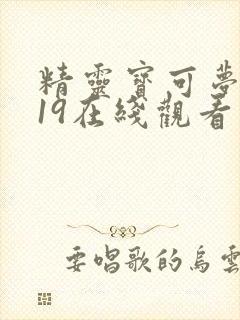 精靈寶可夢
19在綫觀看
要唱歌的烏雲